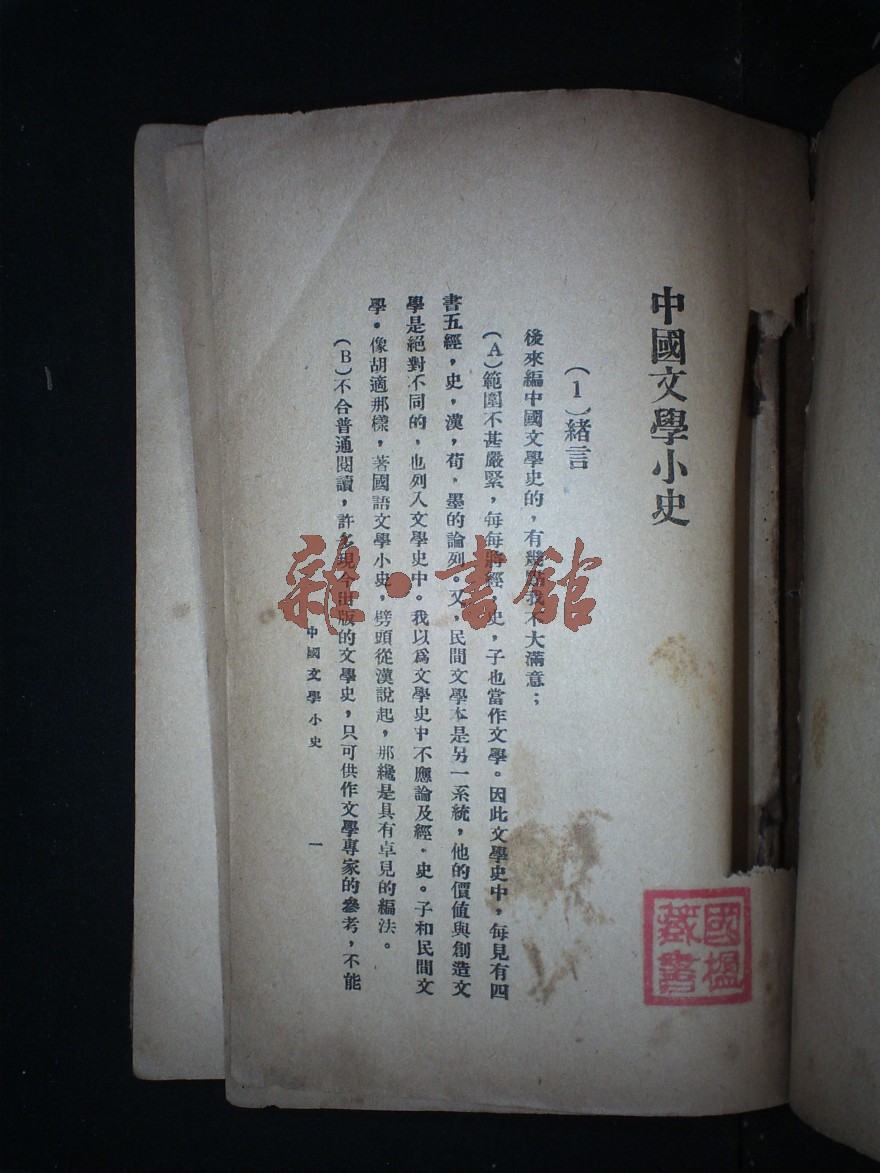 中國文學小史
(1)緒言
後來編中國文學史的,有幾點我不大滿意;
(A)範圍不甚嚴緊,每每將經,史,子也當作文學。因此文學史中,每見有四
書五經,史,漢,荀,墨的論列。又,民間文學本是另一系統,他的價值與創造文
學是絕對不同的,也列入文學史中。我以爲文學史中不應論及經.史。子和民間文
學。像胡適那樣,著國語文學小史,劈頭從漢說起,那纔是具有卓見的編法。
(B)不合普通閱讀,許多現今出版的文學史,只可供作文學專家的參考,不能
中國文學小史 一
雜·書館
國楹
藏書